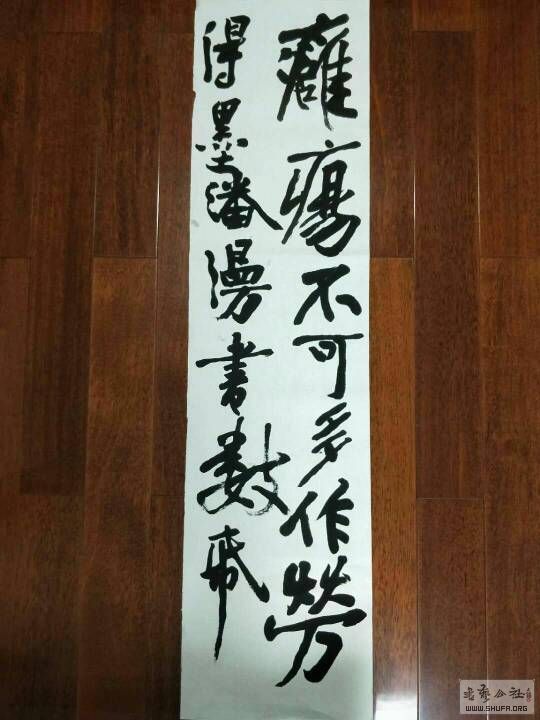 癰瘍不可多作勞
得墨潘漫書數帋
書藝公社
WWW.SHUFA.ORG